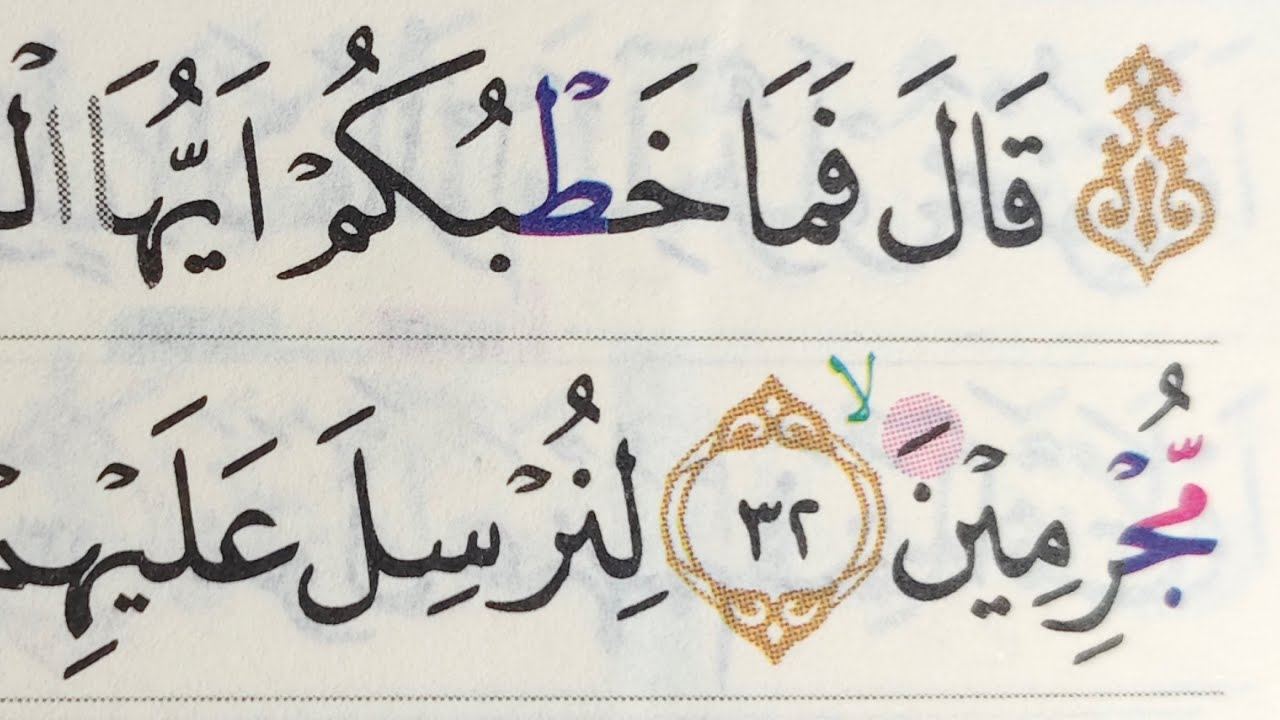 قَالَ فَمَا خَطْبُكُمْ اَيُّهَا الْ
مُّجْرِمِيْنَ ۙ ٣٢ لِنُرْسِلَ عَلَيْهِمْ